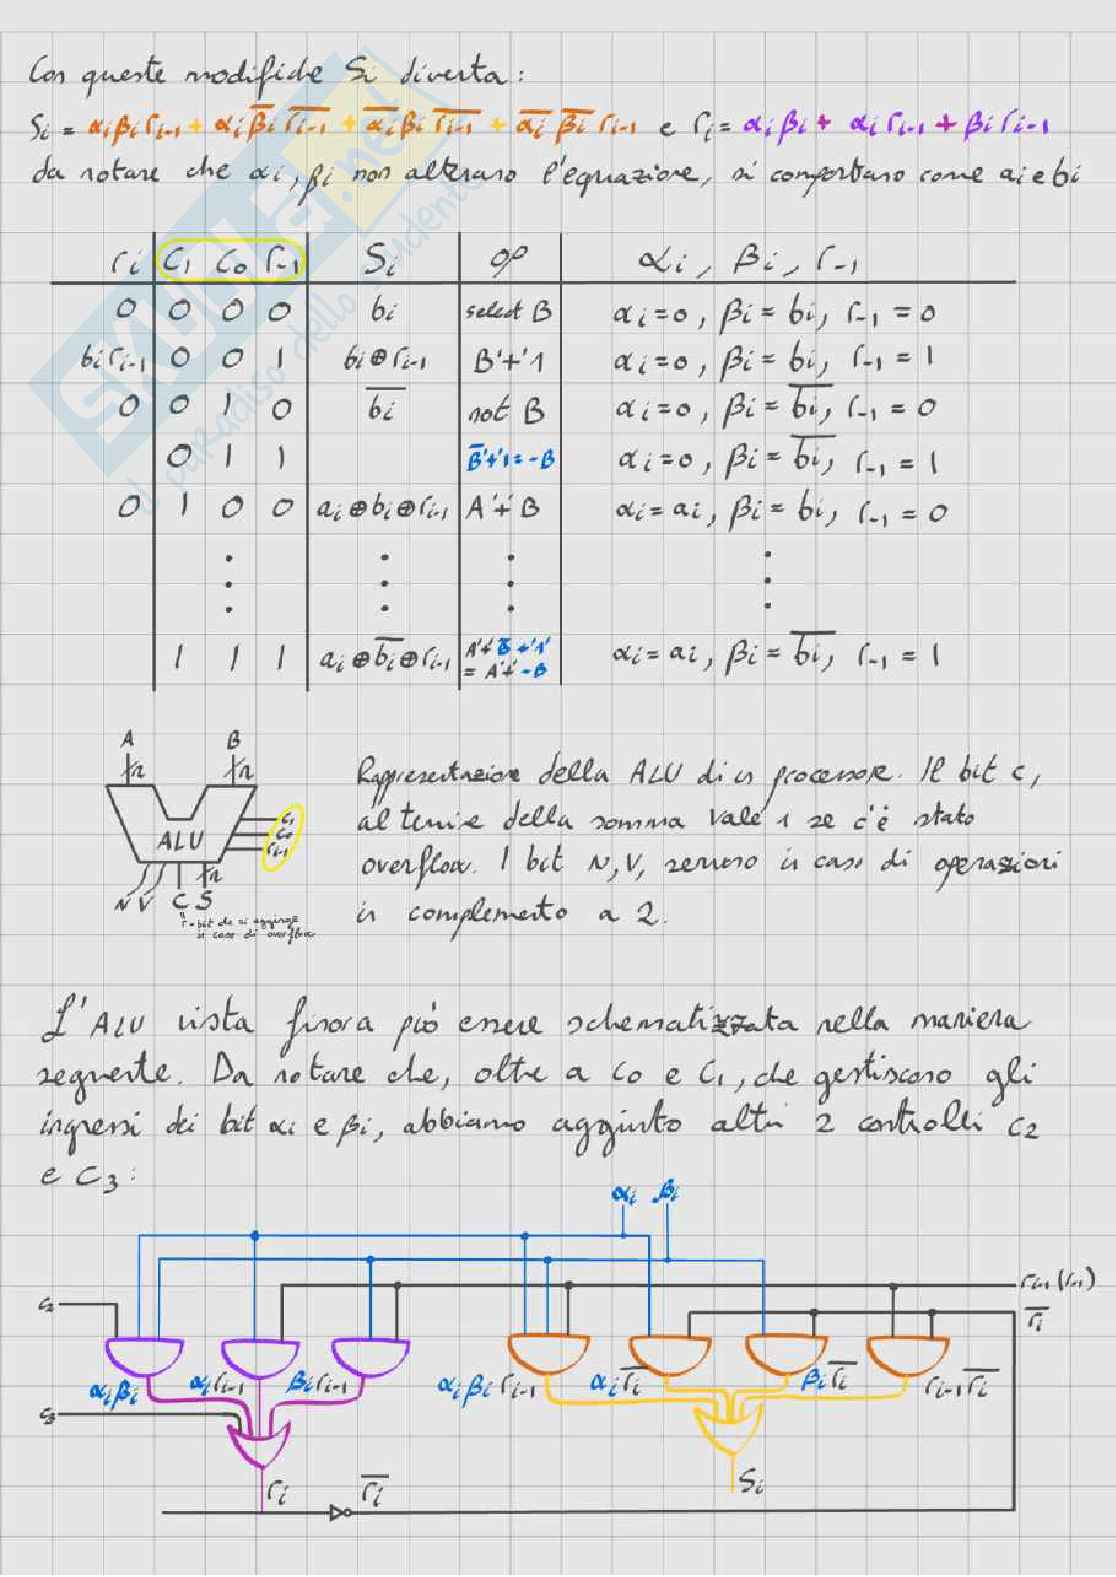 Con queste modifiche Si diventa:
Si = αiβiri-1 + αiβ̅i r̅i-1 + α̅iβi r̅i-1 + α̅i β̅i ri-1 e ri = αiβi + αiri-1 + βiri-1
da notare che αi, βi non alterano l'equazione, si comportano come ai e bi
ri C1 C0 r-1 Si op αi, βi, r-1
0 0 0 0 bi select B αi=0, βi=bi, r-1=0
biri-1 0 0 1 bi⊕ri-1 B'+'1 αi=0, βi=bi, r-1=1
0 0 1 0 b̅i not B αi=0, βi=b̅i, r-1=0
0 1 1 B̅'+'1=-B αi=0, βi=b̅i, r-1=1
0 1 0 0 ai⊕bi⊕ri-1 A'+'B αi=ai, βi=bi, r-1=0
1 1 1 ai⊕b̅i⊕ri-1 A'+'B̅'+'1' αi=ai, βi=b̅i, r-1=1
= A'+'-B
A B
n n
C1
C0
r-1
ALU
n
N V C S
1° bit da si aggiunge
in caso di overflow
Rappresentazione della ALU di un processore. Il bit c,
al termine della somma vale 1 se c'è stato
overflow. I bit N, V, servono in caso di operazioni
in complemento a 2.
L'ALU vista finora può essere schematizzata nella maniera
seguente. Da notare che, oltre a C0 e C1, che gestiscono gli
ingressi dei bit αi e βi, abbiamo aggiunto altri 2 controlli C2
e C3:
αi βi
ri-1 (r-1)
C2 r̅i
αiβi αiri-1 βiri-1 αiβiri-1 αir̅i βir̅i ri-1r̅i
C3
ri r̅i Si
SKUOLA.net
il paradiso dello studente